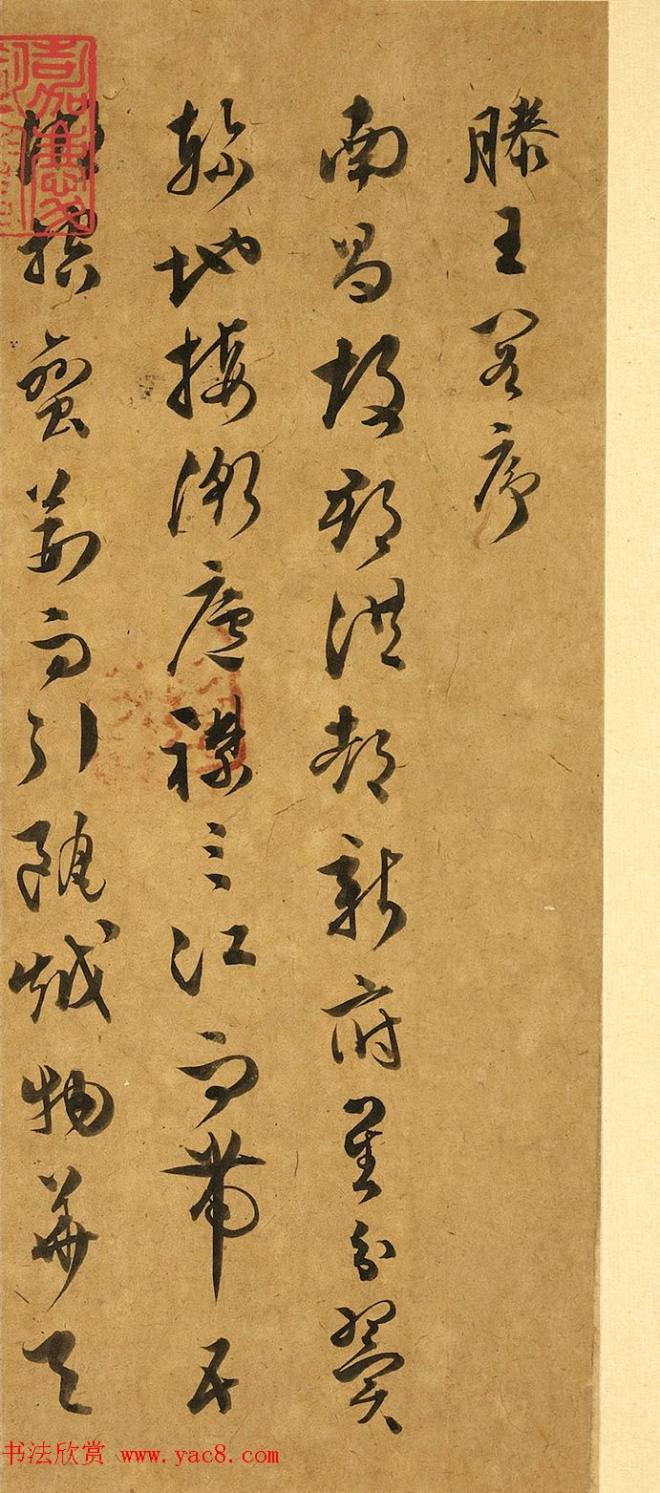 滕王閣序
南昌故郡洪都新府星分翼
軫地接衡廬襟三江而帶五
湖控蠻荊而引甌越物華天
嘉慶
书法欣赏 www.yac8.com